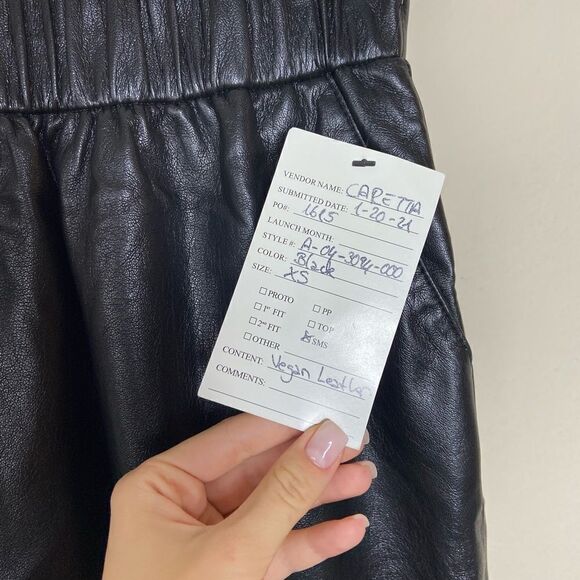 VENDOR NAME: CARETTA
SUBMITTED DATE: 1-20-21
PO#: 1615
LAUNCH MONTH:
STYLE #: A-04-3094-000
COLOR: Black
SIZE: XS
☐ PROTO ☐ PP
☐ 1st FIT ☐ TOP
☐ 2nd FIT ☒ SMS
☐ OTHER
CONTENT: Vegan Leather
COMMENTS: